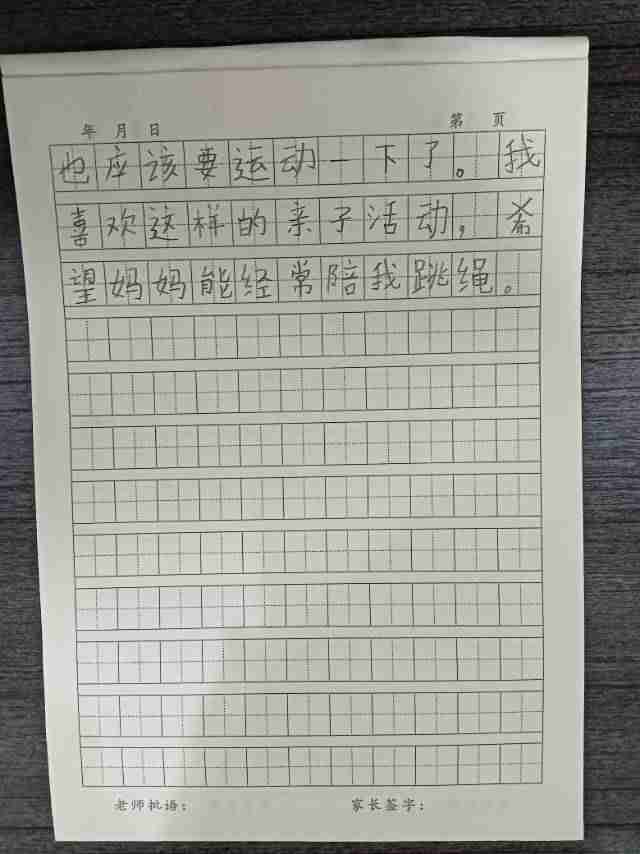 年 月 日 第 页
也应该要运动一下了。我
喜欢这样的亲子活动，希
望妈妈能经常陪我跳绳。
老师批语： 家长签字：